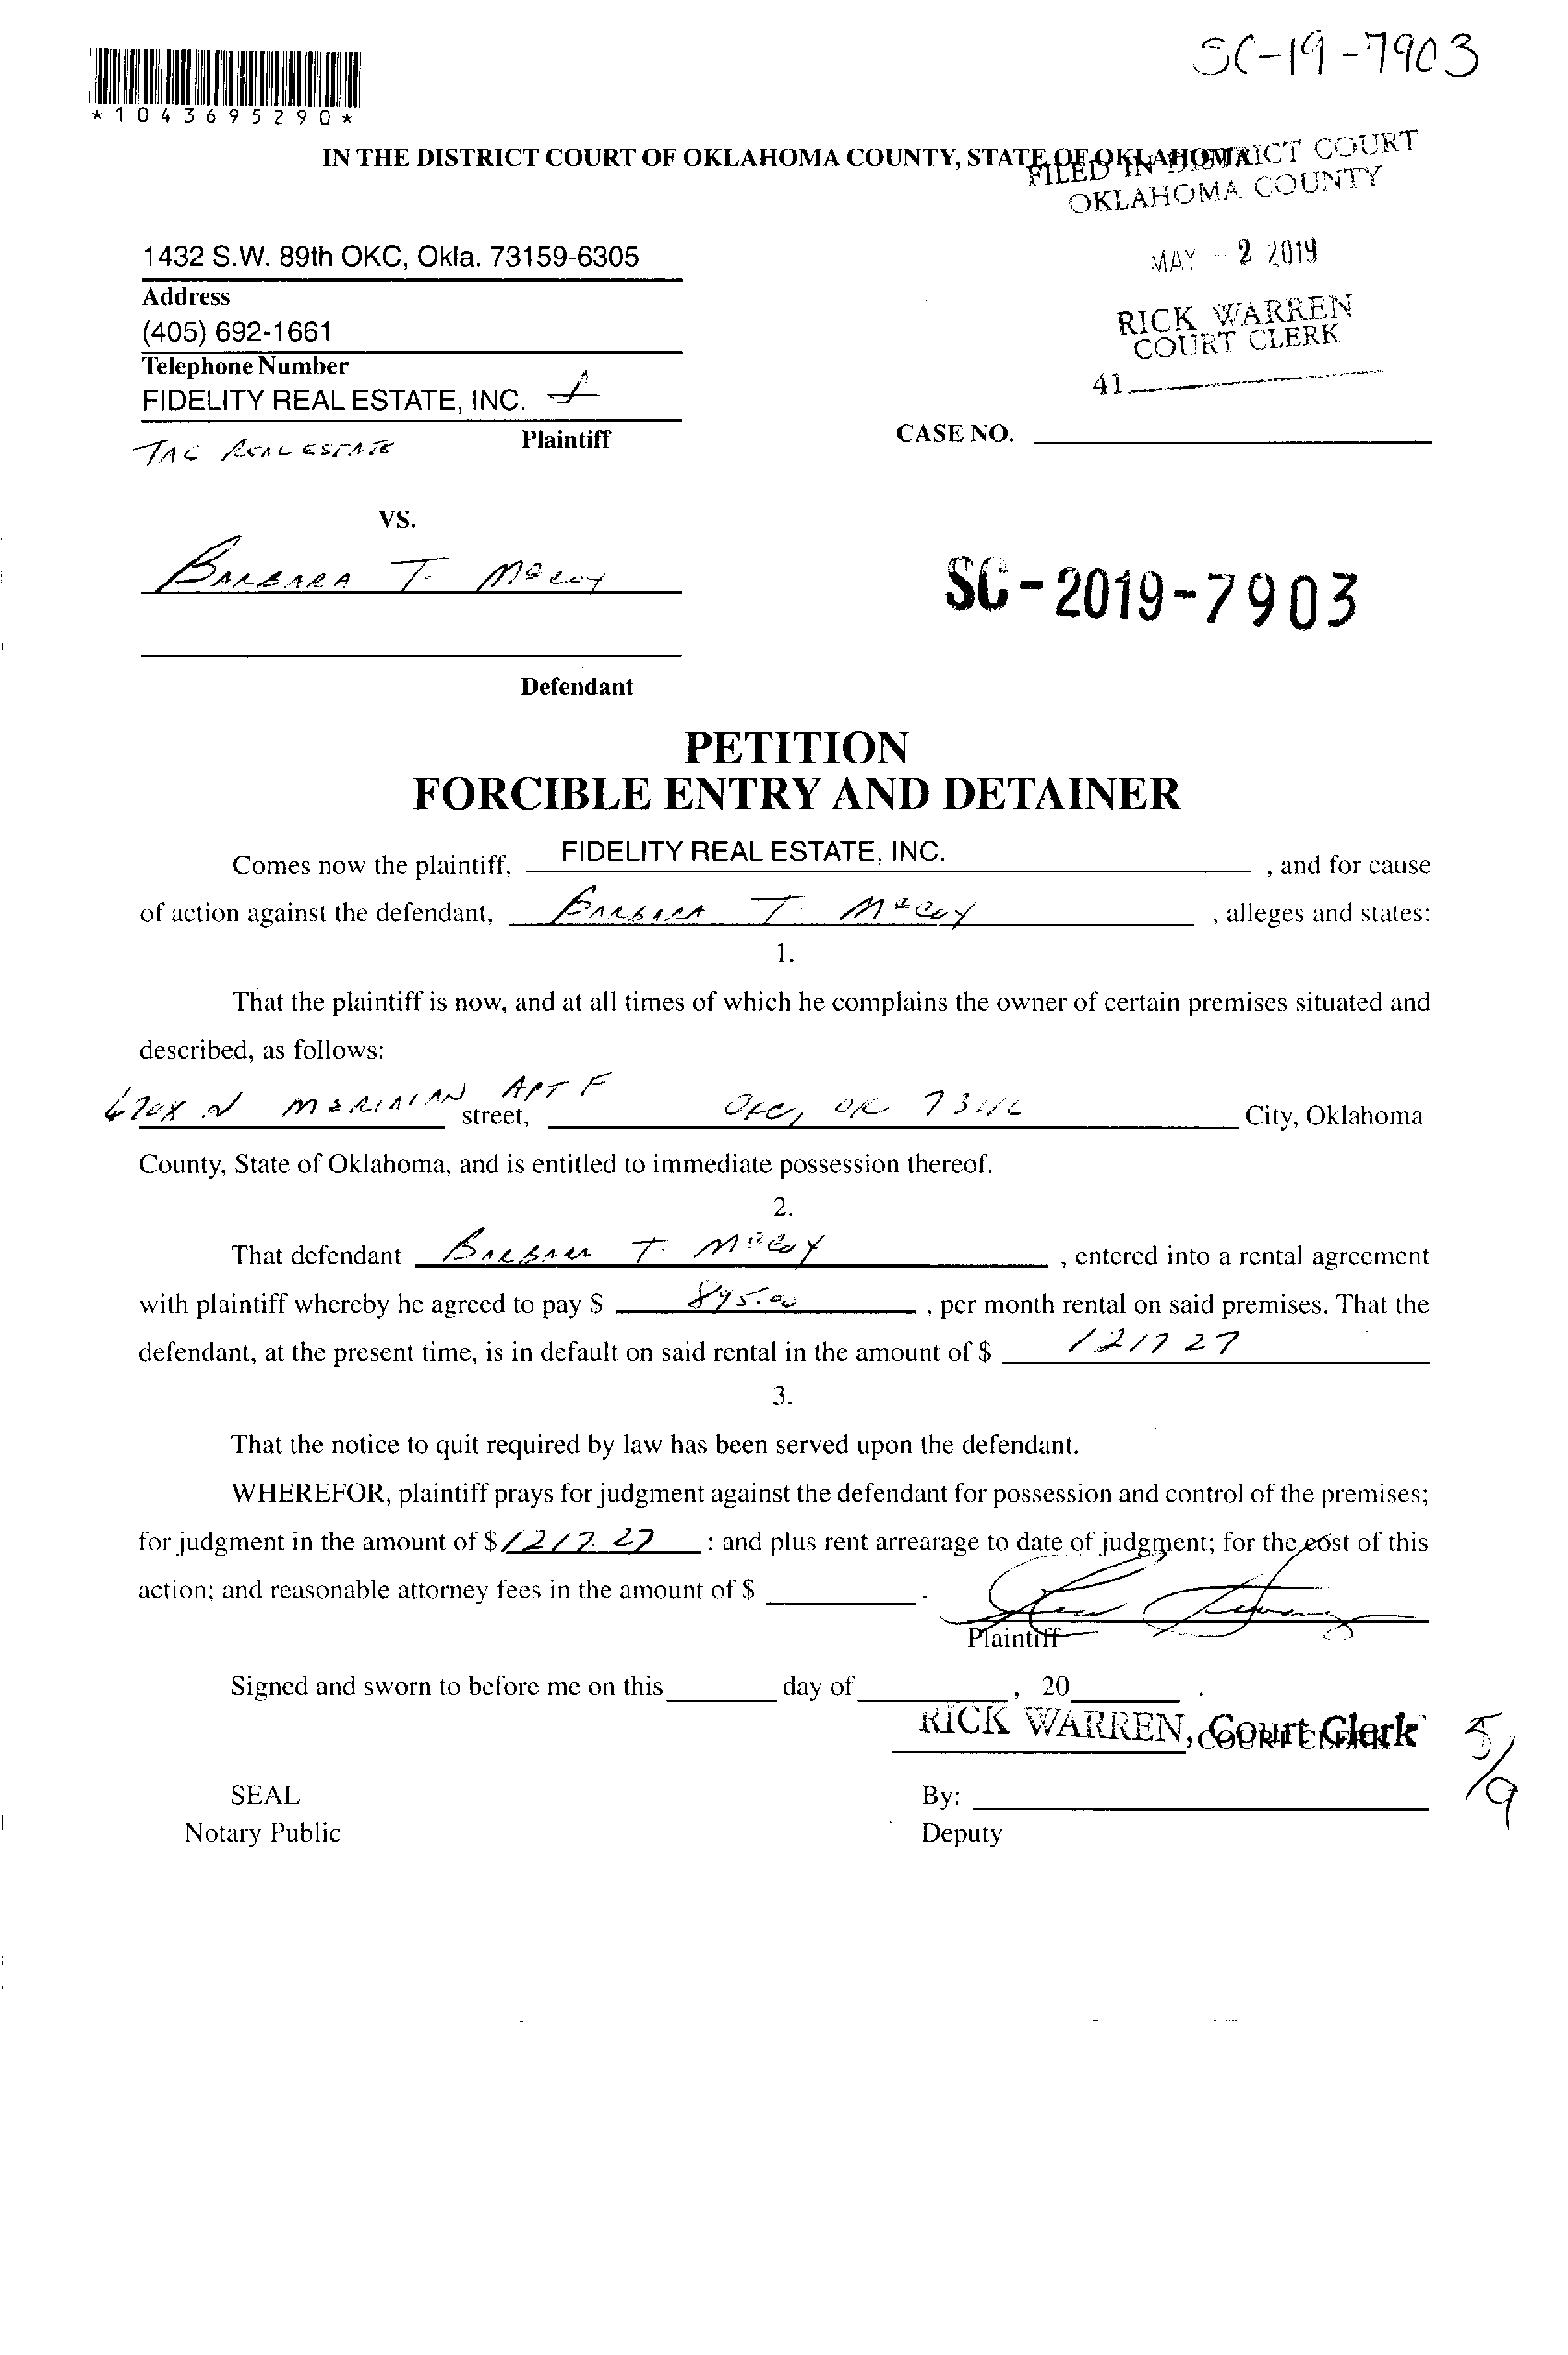 SC-19-7903
*1043695290*
IN THE DISTRICT COURT OF OKLAHOMA COUNTY, STATE OF OKLAHOMA
FILED IN DISTRICT COURT
OKLAHOMA COUNTY
1432 S.W. 89th OKC, Okla. 73159-6305
MAY - 2 2019
Address
(405) 692-1661
RICK WARREN
COURT CLERK
Telephone Number
41
FIDELITY REAL ESTATE, INC.
Plaintiff
CASE NO.
TAC REAL ESTATE
VS.
BARBARA T. McCoy
SC-2019-7903
Defendant
PETITION
FORCIBLE ENTRY AND DETAINER
Comes now the plaintiff, FIDELITY REAL ESTATE, INC. , and for cause
of action against the defendant, BARBARA T McCoy , alleges and states:
1.
That the plaintiff is now, and at all times of which he complains the owner of certain premises situated and
described, as follows:
N MERIDIAN APT F street, OKC, OK City, Oklahoma
County, State of Oklahoma, and is entitled to immediate possession thereof.
2.
That defendant BARBARA T. McCoy , entered into a rental agreement
with plaintiff whereby he agreed to pay $ 895.00 , per month rental on said premises. That the
defendant, at the present time, is in default on said rental in the amount of $ 1217 27
3.
That the notice to quit required by law has been served upon the defendant.
WHEREFOR, plaintiff prays for judgment against the defendant for possession and control of the premises;
for judgment in the amount of $ 1217.27 : and plus rent arrearage to date of judgment; for the cost of this
action; and reasonable attorney fees in the amount of $ .
Plaintiff
Signed and sworn to before me on this day of , 20 .
RICK WARREN, Court Clerk
COURT CLERK
5/9
SEAL
By:
Notary Public
Deputy